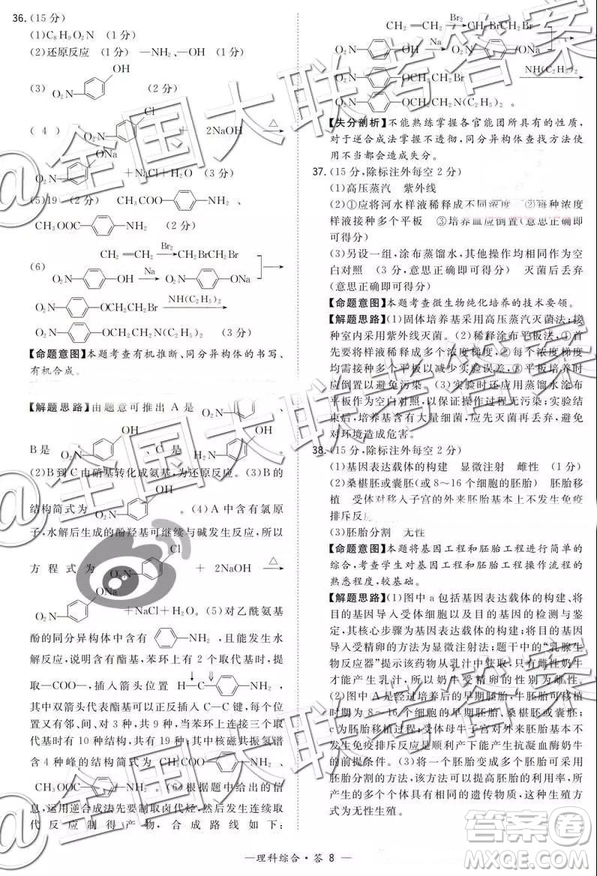 36.(15分)
(1)C₈H₉O₂N (1分)
(2)还原反应 (1分) —NH₂、—OH (1分)
(3) O₂N OH (2分)
(4) O₂N Cl + 2NaOH
O₂N ONa + NaCl + H₂O (2分)
(5)19 (2分) CH₃COO NH₂ (1分)
CH₃OOC NH₂ (1分)
CH₂=CH₂ Br₂ CH₂BrCH₂Br
(6) O₂N OH Na O₂N ONa
O₂N OCH₂CH₂Br NH(C₂H₅)₂
O₂N OCH₂CH₂N(C₂H₅)₂ (3分)
【命题意图】本题考查有机推断、同分异构体的书写、
有机合成。
【解题思路】由题意可推出 A 是 O₂N
B是 O₂N OH C是 NH₂ OH
(2)B 到 C 由硝基转化成氨基,为还原反应。(3)B的
结构简式为 O₂N OH (4)A 中含有氯原
子,水解后生成的酚羟基可继续与碱发生反应,所以
方程式为 O₂N Cl + 2NaOH
O₂N ONa + NaCl + H₂O (5)对乙酰氨基
酚的同分异构体中含有 NH₂,且发生水
解反应,说明含有酯基,苯环上有 2 个取代基时,一
定有—COO—,插入箭头位置 H C NH₂,
其中双箭头代表酯基可以正反插入 C—C 键,每个取
代基都有邻、间、对 3 种,共 9 种,当苯环上有 3 个取
代基时有 10 种结构,共有 19 种,其中核磁共振氢谱
含 4 种峰的结构简式为 CH₃COO NH₂、
CH₃OOC NH₂ (6)根据题中信息,运
用逆合成法分析,需要先制取卤代烃,然后根据取代
反应制得产物,合成路线如下:
CH₂=CH₂ Br₂ CH₂BrCH₂Br
O₂N OH Na O₂N ONa
O₂N OCH₂CH₂Br NH(C₂H₅)₂
O₂N OCH₂CH₂N(C₂H₅)₂
【失分剖析】不能熟练掌握各官能团所具有的性质,
对于逆合成法掌握不透彻,同分异构体查找方法使
用不当都会造成失分。
37.(15分,除标注外每空2分)
(1)高压蒸汽 紫外线
(2)①应将样液稀释成不同浓度 ②应将不同浓度
样液接种多个平板 ④培养皿应倒置(以上意思正
确即可得分)
(3)另设一组,涂布蒸馏水,其他与实验组相同,作为
空白对照 (3分,意思正确即可得分) 灭菌后丢弃
【命题意图】本题考查微生物纯化培养的技术要领。
【解题思路】(1)固体培养基采用高压蒸汽灭菌法;接
种室内采用紫外线灭菌。(2)稀释涂布平板法,①首
先要将样液稀释成不同浓度梯度,②每个浓度都要
接种多个平板作为重复,以避免误差,④平板培养时
应倒置以避免污染。(3)为了避免实验误差,应设置
空白对照,即涂布蒸馏水,其他与实验组相同。实验
结束后,培养基含有大量的细菌,应灭菌再丢弃,避免
对环境造成危害。
38.(15分,除标注外每空2分)
(1)基因表达载体的构建 显微注射 雌性 (1分)
(2)桑椹胚或囊胚(或8~16个细胞的胚胎) 胚胎移
植 受体对移入子宫的外来胚胎基本上不发生免疫
排斥反应
(3)胚胎分割 无性
【命题意图】本题将基因工程和胚胎工程进行简单的
综合,考查学生对基因工程和胚胎工程操作流程的
熟悉程度,较基础。
【解题思路】(1)图中 a 包括基因表达载体的构建、将
目的基因导入受体细胞以及目的基因的检测与鉴
定,其中最核心的是基因表达载体的构建。将目的基
因导入受精卵的方法为显微注射法;题干中的“乳腺生
物反应器”提示该药物从乳汁中获得,而只有雌性奶牛
才能产生乳汁,故应选择性染色体为XX的受精卵。
(2)图中 A 是经过培养后的早期胚胎,牛胚胎可移植
的时期是8~16个细胞的早期胚胎、桑椹胚或囊胚;
c为胚胎移植过程。受体母牛子宫对外来胚胎基本不
发生免疫排斥反应,因此可顺利产生凝血酶奶牛
(3)图示操作将一个胚胎分割成了两个胚胎,称为胚
胎分割。胚胎分割的方法可以获得多个胚胎,且所
产生的多个个体之间的遗传物质相同,因此该方法
为无性生殖。
—理科综合·答 8—
@全国大联考答案
@全国大联考答案
答案圈
MXQE.COM